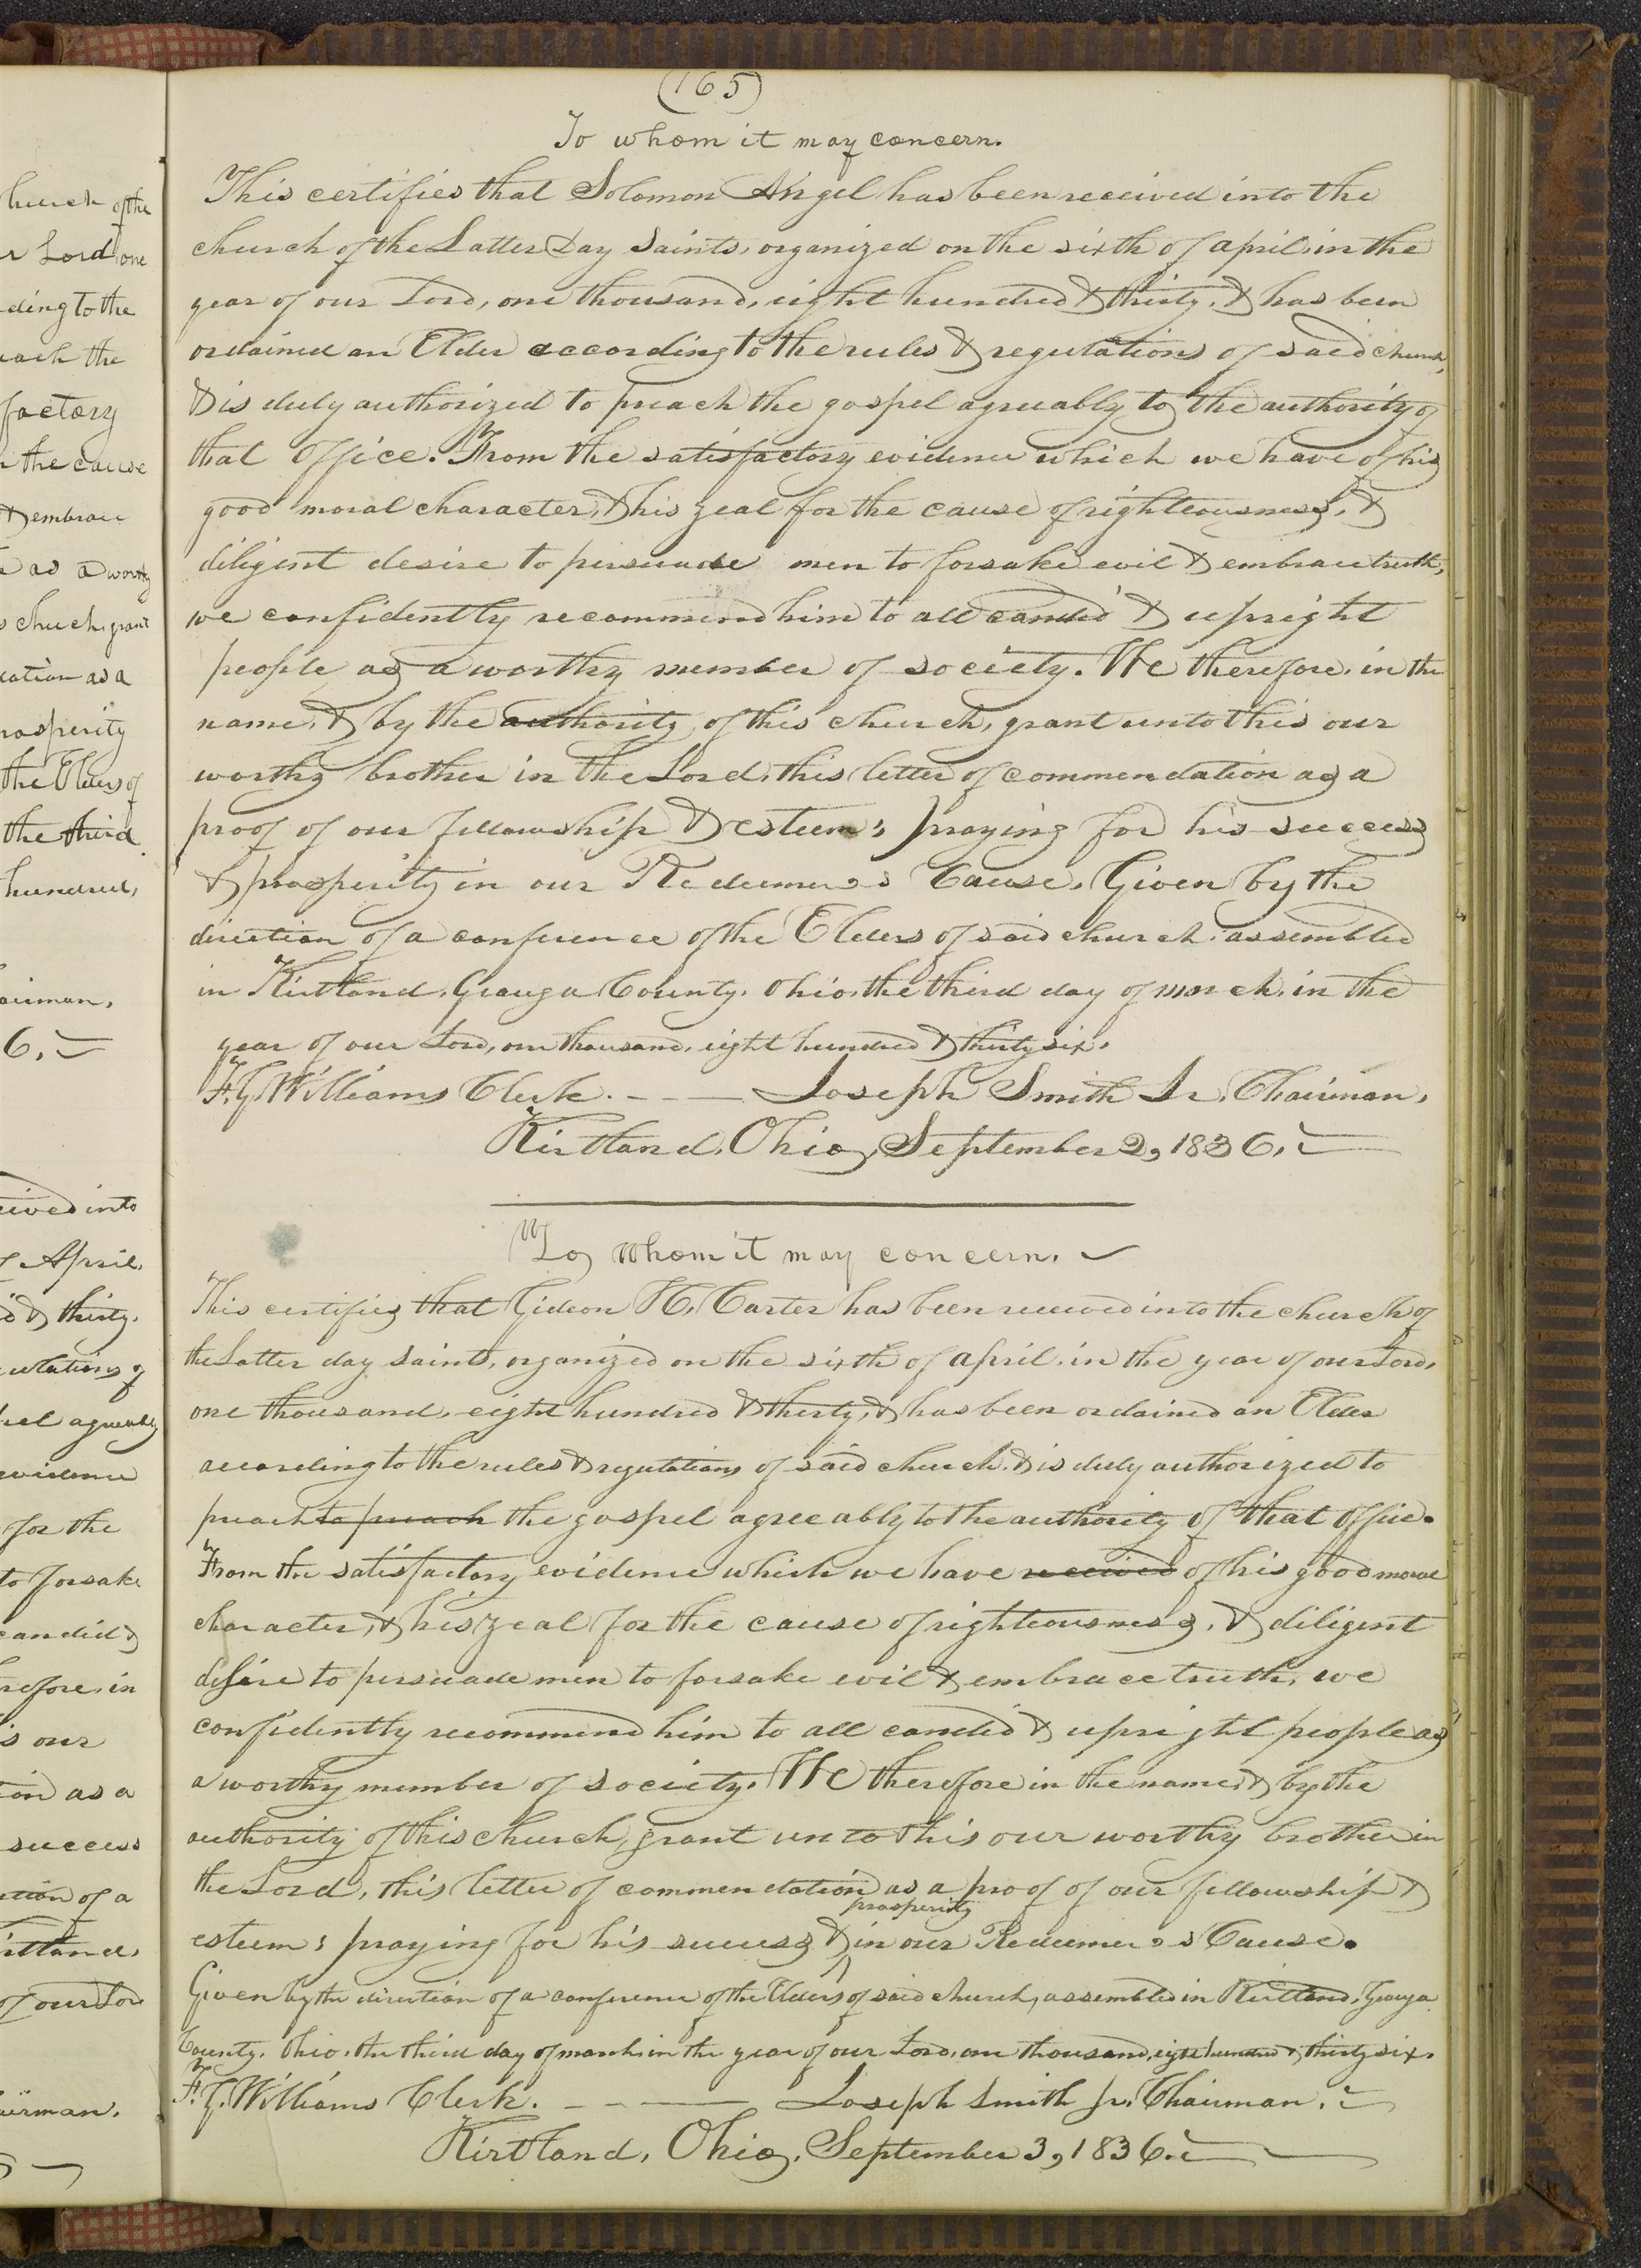 (165)
To whom it may concern.
This certifies that Solomon Angel has been received into the
church of the Latter Day Saints, organized on the sixth of april, in the
year of our Lord, one thousand, eight hundred & thirty, & has been
ordained an Elder according to the rules & regulations of said church,
& is duly authorized to preach the gospel agreeably to the authority of
that office. From the satisfactory evidence which we have of his
good moral character, & his zeal for the cause of righteousness, &
diligent desire to persuade men to forsake evil & embrace truth,
we confidently recommend him to all candid & upright
people as a worthy member of society. We therefore, in the
name, & by the authority, of this church, grant unto this our
worthy brother in the Lord, this letter of commendation as a
proof of our fellowship & esteem; praying for his success
& prosperity in our Redeemer's Cause. Given by the
direction of a conference of the Elders of said church, assembled
in Kirtland, Geauga County, Ohio, the third day of march, in the
year of our Lord, one thousand, eight hundred & thirty six.
F. G. Williams Clerk. - - — Joseph Smith Jr. Chairman.
Kirtland, Ohio, September 2, 1836.
To whom it may concern.
This certifies that Gideon H. Carter has been received into the church of
the Latter day Saints, organized on the sixth of april, in the year of our Lord,
one thousand, eight hundred & thirty, & has been ordained an Elder
according to the rules & regulations of said church, & is duly authorized to
preach to preach the gospel agreeably to the authority of that office.
From the satisfactory evidence which we have received of his good moral
character, & his zeal for the cause of righteousness, & diligent
desire to persuade men to forsake evil & embrace truth, we
confidently recommend him to all candid & upright people as
a worthy member of society. We therefore in the name, & by the
authority of this church, grant unto this our worthy brother in
the Lord, this letter of commendation as a proof of our fellowship &
prosperity
esteem; praying for his success & in our Redeemer's Cause.
Given by the direction of a conference of the Elders of said church, assembled in Kirtland, Geauga
County, Ohio, the third day of march, in the year of our Lord, one thousand, eight hundred & thirty six.
F. G. Williams Clerk. - - — Joseph Smith Jr. Chairman.
Kirtland, Ohio, September 3, 1836.